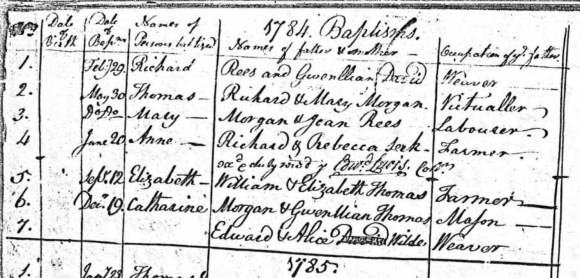 1784. Baptisms.
No. Date of Birth Date of Bapm. Names of Persons baptized Names of father & mother Occupation of ye. father
1. Feby. 29. Richard Rees and Gwenllian David Weaver
2. May 30 Thomas— Richard & Mary Morgan. Victualler
3. Do. Do. Mary— Morgan & Jean Rees Labourer—
4 June 20 Anne— Richard & Rebecca Farmer—
Edwd. Lewis.
5. Sept. 12 Elizabeth— William & Elizabeth Thomas Farmer—
6. Decr. 19. Catharine Morgan & Gwenllian Thomas Mason—
7. Edward & Alice Wilde Weaver
1785.
1. Jany. 28 Thomas